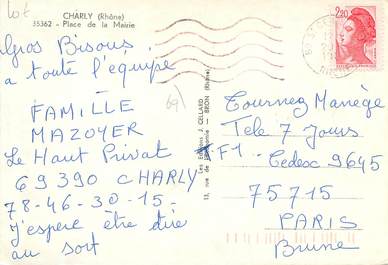 Lot
CHARLY (Rhône)
35362 - Place de la Mairie
Gros Bisous
a toute l'equipe
69)
FAMILLE
MAZOYER
Le Haut Privat
69390 CHARLY
78-46-30-15-
J'espere être tire
au sort
Les Editions J. CELLARD
BRON (Rhône)
2,20
Tournez Manège
Tele 7 Jours
TF1- Cedex 9645
75715
PARIS
Brune